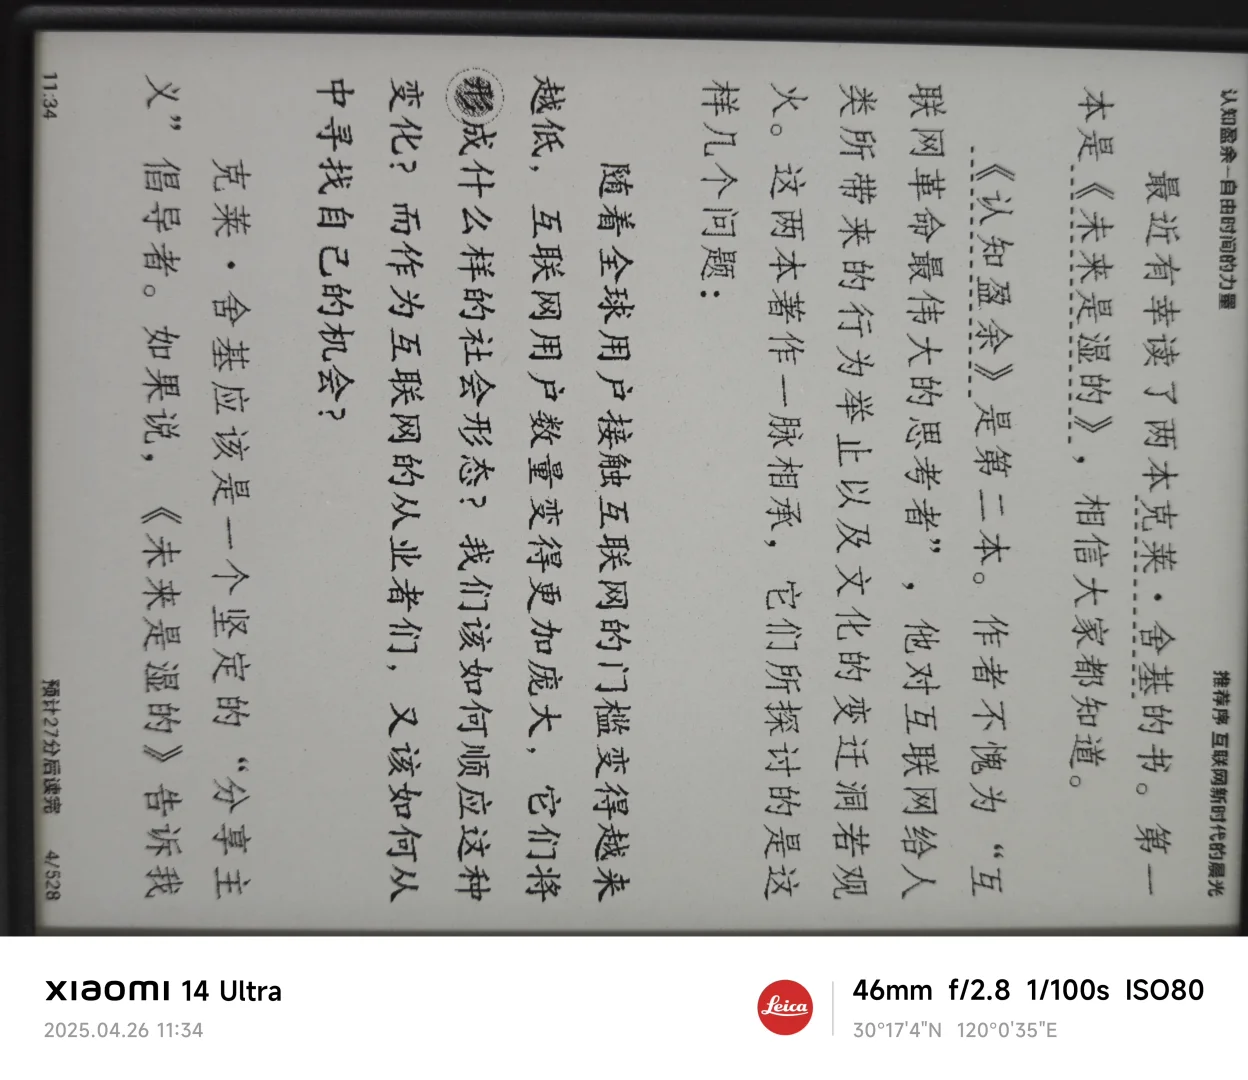 认知盈余-自由时间的力量
推荐序 互联网新时代的晨光
最近有幸读了两本克莱·舍基的书。第一
本是《未来是湿的》，相信大家都知道。
《认知盈余》是第二本。作者不愧为“互
联网革命最伟大的思考者”，他对互联网给人
类所带来的行为举止以及文化的变迁洞若观
火。这两本著作一脉相承，它们所探讨的是这
样几个问题：
随着全球用户接触互联网的门槛变得越来
越低，互联网用户数量变得更加庞大，它们将
形成什么样的社会形态？我们该如何顺应这种
变化？而作为互联网的从业者们，又该如何从
中寻找自己的机会？
克莱·舍基应该是一个坚定的“分享主
义”倡导者。如果说，《未来是湿的》告诉我
11:34
预计27分后读完
4/528
xiaomi 14 Ultra
2025.04.26 11:34
Leica
46mm f/2.8 1/100s ISO80
30°17'4"N 120°0'35"E